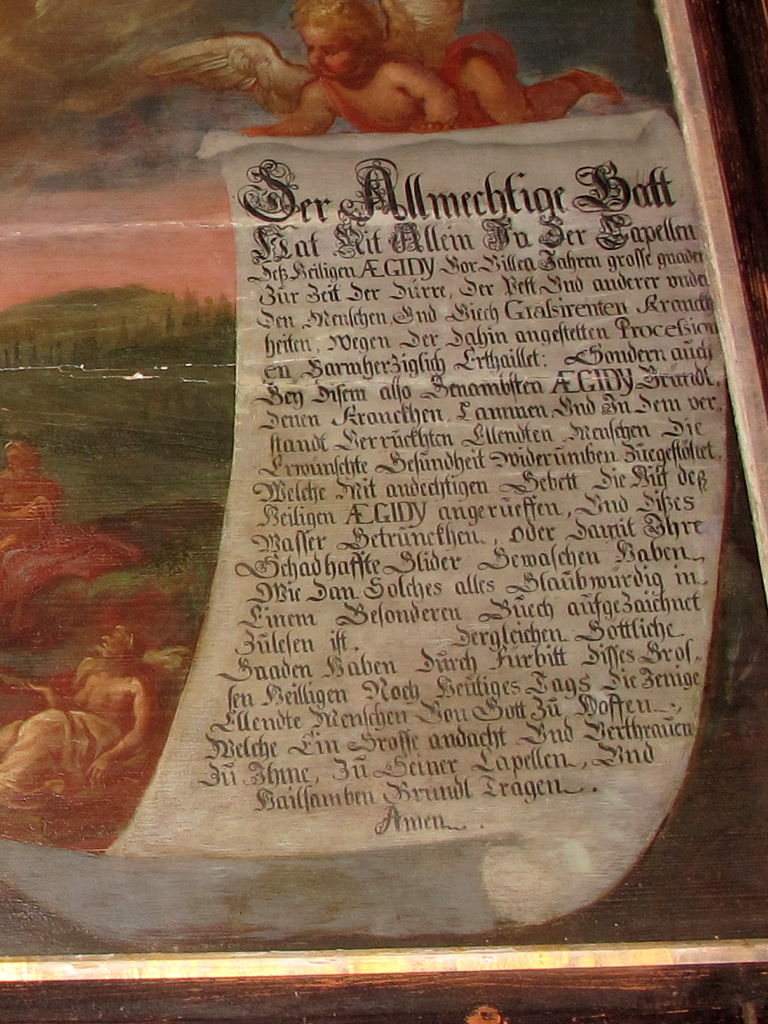 Der Allmechtige Gott
Hat Nit Allein In Der Capellen
Deß Heiligen ÆGIDY Vor Villen Jahren grosse gnaden
Zur Zeit Der Dürre, Der Pest Und anderer under
Den Menschen, Und Viech Grasirenten Kranck
heiten, Wegen Der Dahin angestelten Procession
en Barmherziglich Erthaillet: Sondern auch
Bey Disem also Benambsten ÆGIDY Bründl,
Denen Kranckhen, Lammen Und In Dem ver
standt Verruckhten Ellendten Menschen Die
Erwunschte Gesundheit widerumben Zuegestöltet.
Welche Mit andechtigen Gebett Die Hilf deß
Heiligen ÆGIDY angerueffen, Und Dißes
Wasser Getrunckhen, oder Damit Ihre
Schadhaffte Glider Gewaschen Haben,
Wie Dan Solches alles Glaubwürdig in
Einem Besonderen Buech aufgeZaichnet
Zulesen ist. Dergleichen Gottliche
Gnaden Haben Durch Furbitt Disses Gros,,
sen Heilligen Noch Heutiges Tags Die Jenige
Ellendte Menschen Von Gott Zu Hoffen,
Welche Ein Grosse andacht Und Verthrauen
Zu Ihme, Zu Seiner Capellen, Und
Hailsamben Brundl Tragen.
Amen.